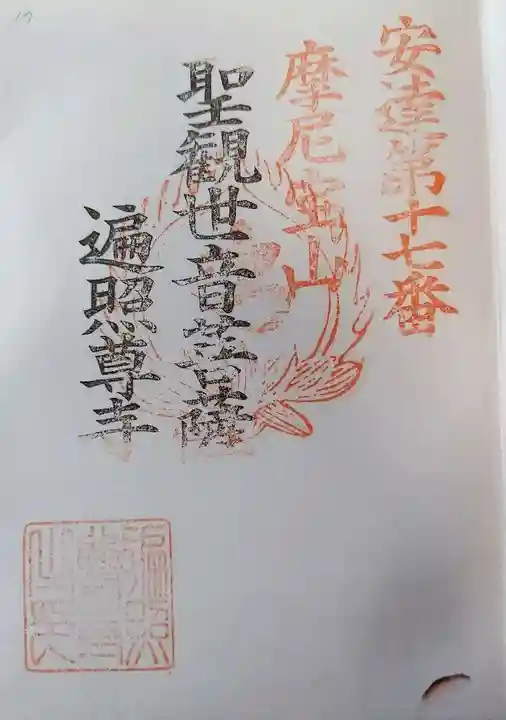 安達第十七番
摩尼宝山
聖観世音菩薩
遍照尊寺
17